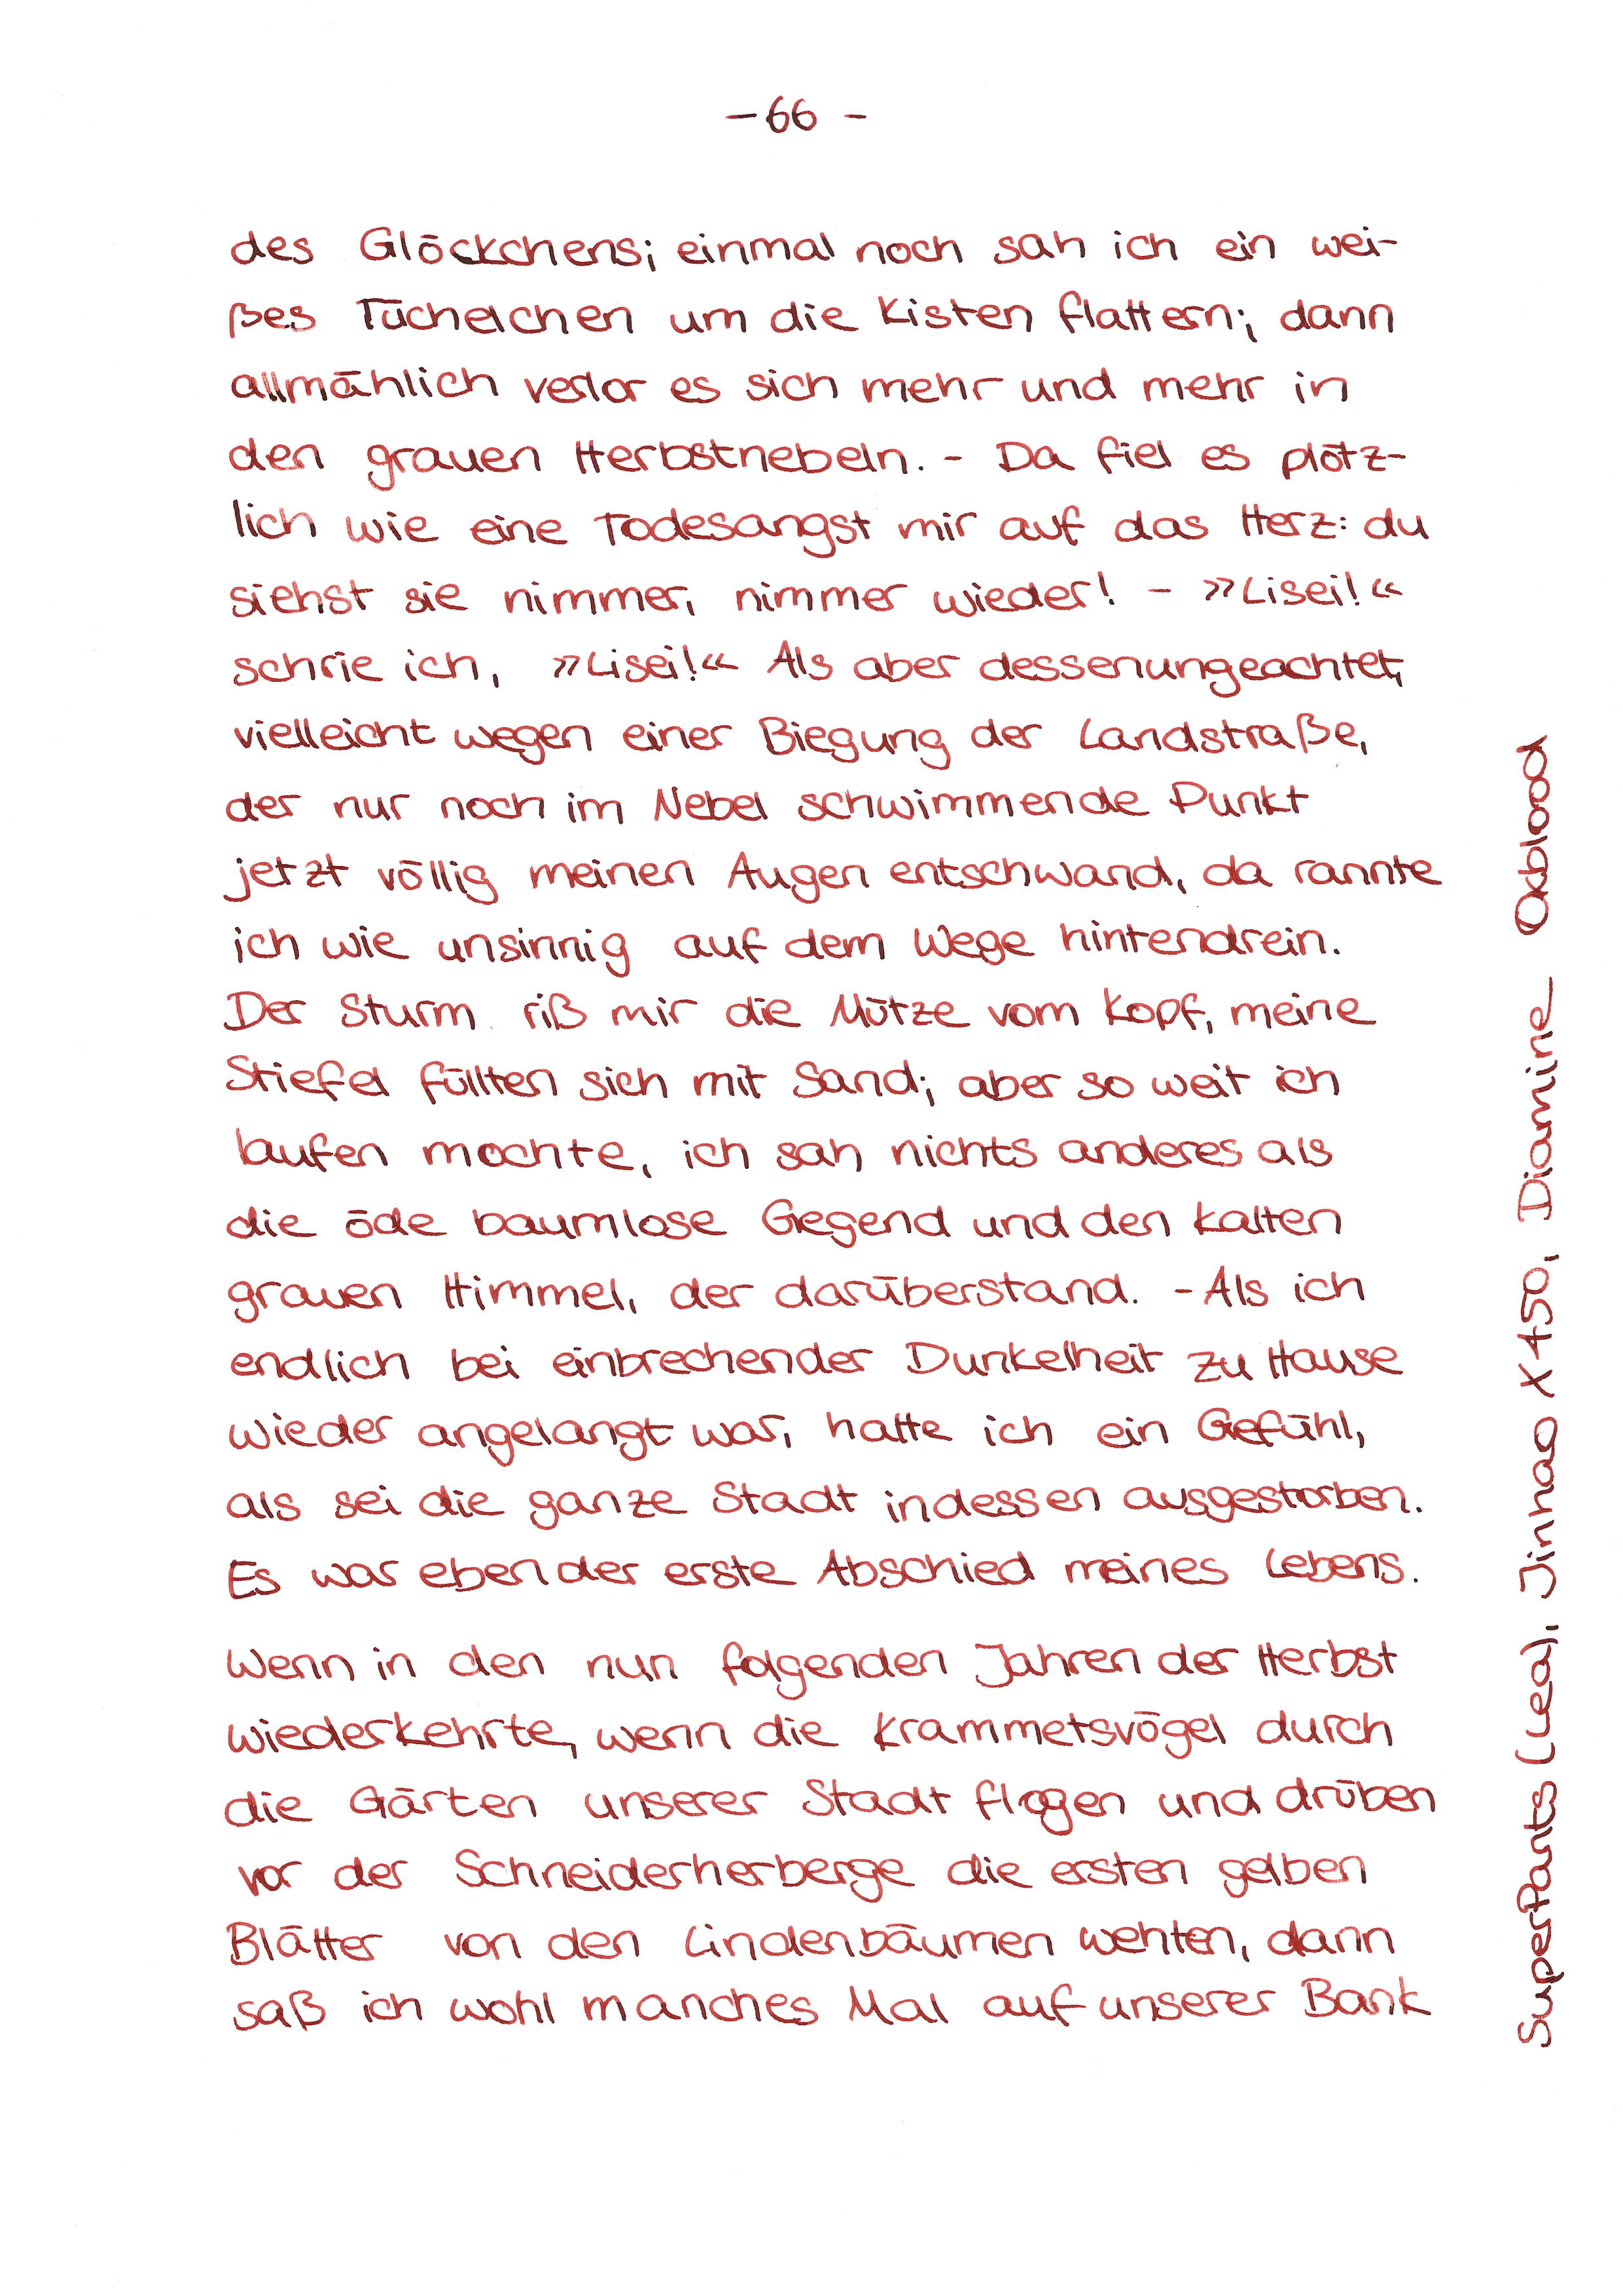 – 66 –
des Glöckchens; einmal noch sah ich ein wei-
ßes Tüchelchen um die Kisten flattern; dann
allmählich verlor es sich mehr und mehr in
den grauen Herbstnebeln. – Da fiel es plötz-
lich wie eine Todesangst mir auf das Herz: du
siehst sie nimmer, nimmer wieder! – »Lisei!«
schrie ich, »Lisei!« Als aber dessenungeachtet,
vielleicht wegen einer Biegung der Landstraße,
der nur noch im Nebel schwimmende Punkt
jetzt völlig meinen Augen entschwand, da rannte
ich wie unsinnig auf dem Wege hinterdrein.
Der Sturm riß mir die Mütze vom Kopf, meine
Stiefel füllten sich mit Sand; aber so weit ich
laufen mochte, ich sah nichts anderes als
die öde baumlose Gegend und den kalten
grauen Himmel, der darüberstand. – Als ich
endlich bei einbrechender Dunkelheit zu Hause
wieder angelangt war, hatte ich ein Gefühl,
als sei die ganze Stadt indessen ausgestorben.
Es war eben der erste Abschied meines Lebens.
Wenn in den nun folgenden Jahren der Herbst
wiederkehrte, wenn die Krammetsvögel durch
die Gärten unserer Stadt flogen und drüben
vor der Schneiderherberge die ersten gelben
Blätter von den Lindenbäumen wehten, dann
saß ich wohl manches Mal auf unserer Bank
SuperPants (Lea), Jinhao X450, Diamine Oxblood